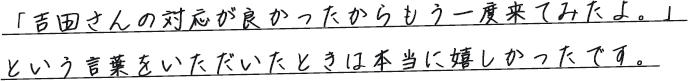 「吉田さんの対応が良かったからもう一度来てみたよ。」
という言葉をいただいたときは本当に嬉しかったです。